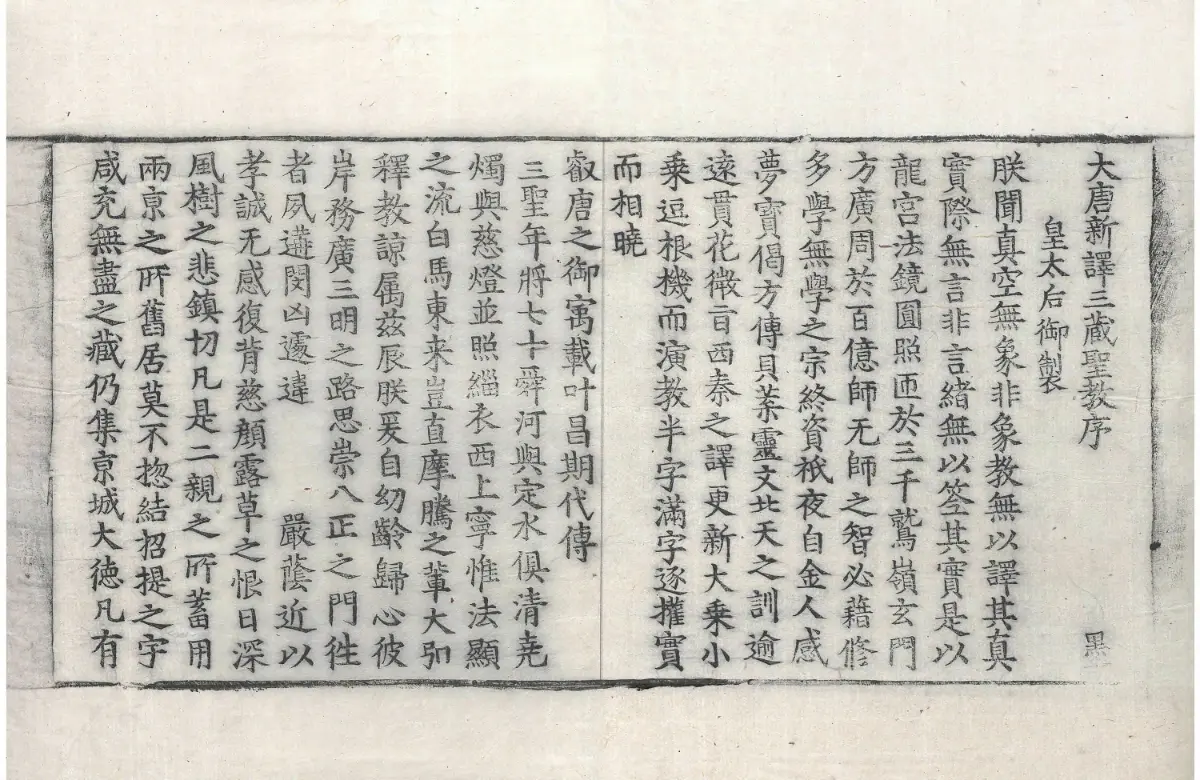 大唐新譯三藏聖教序
墨
皇太后御製
朕聞真空無象非象教無以譯其真
實際無言非言緒無以筌其實是以
龍宮法鏡圓照匝於三千鷲嶺玄門
方廣周於百億師无師之智必藉修
多學無學之宗終資祇夜自金人感
夢寶偈方傳貝葉靈文北天之訓逾
遠貫花微言西秦之譯更新大乗小
乗逗根機而演教半字滿字逐攉實
而相曉
叡唐之御寓載叶昌期代傳
三聖年將七十舜河與定水俱清尭
燭與慈燈並照緇衣西上寧惟法顯
之流白馬東来豈直摩騰之輩大弘
釋教諒属兹辰朕爰自幼齡歸心彼
岸務廣三明之路思崇八正之門徃
者夙遘閔凶遽違　嚴蔭近以
孝誠无感復背慈顔露草之恨日深
風樹之悲鎮切凡是二親之所蓄用
兩京之所舊居莫不捴結招提之宇
咸充無盡之藏仍集京城大徳凡有